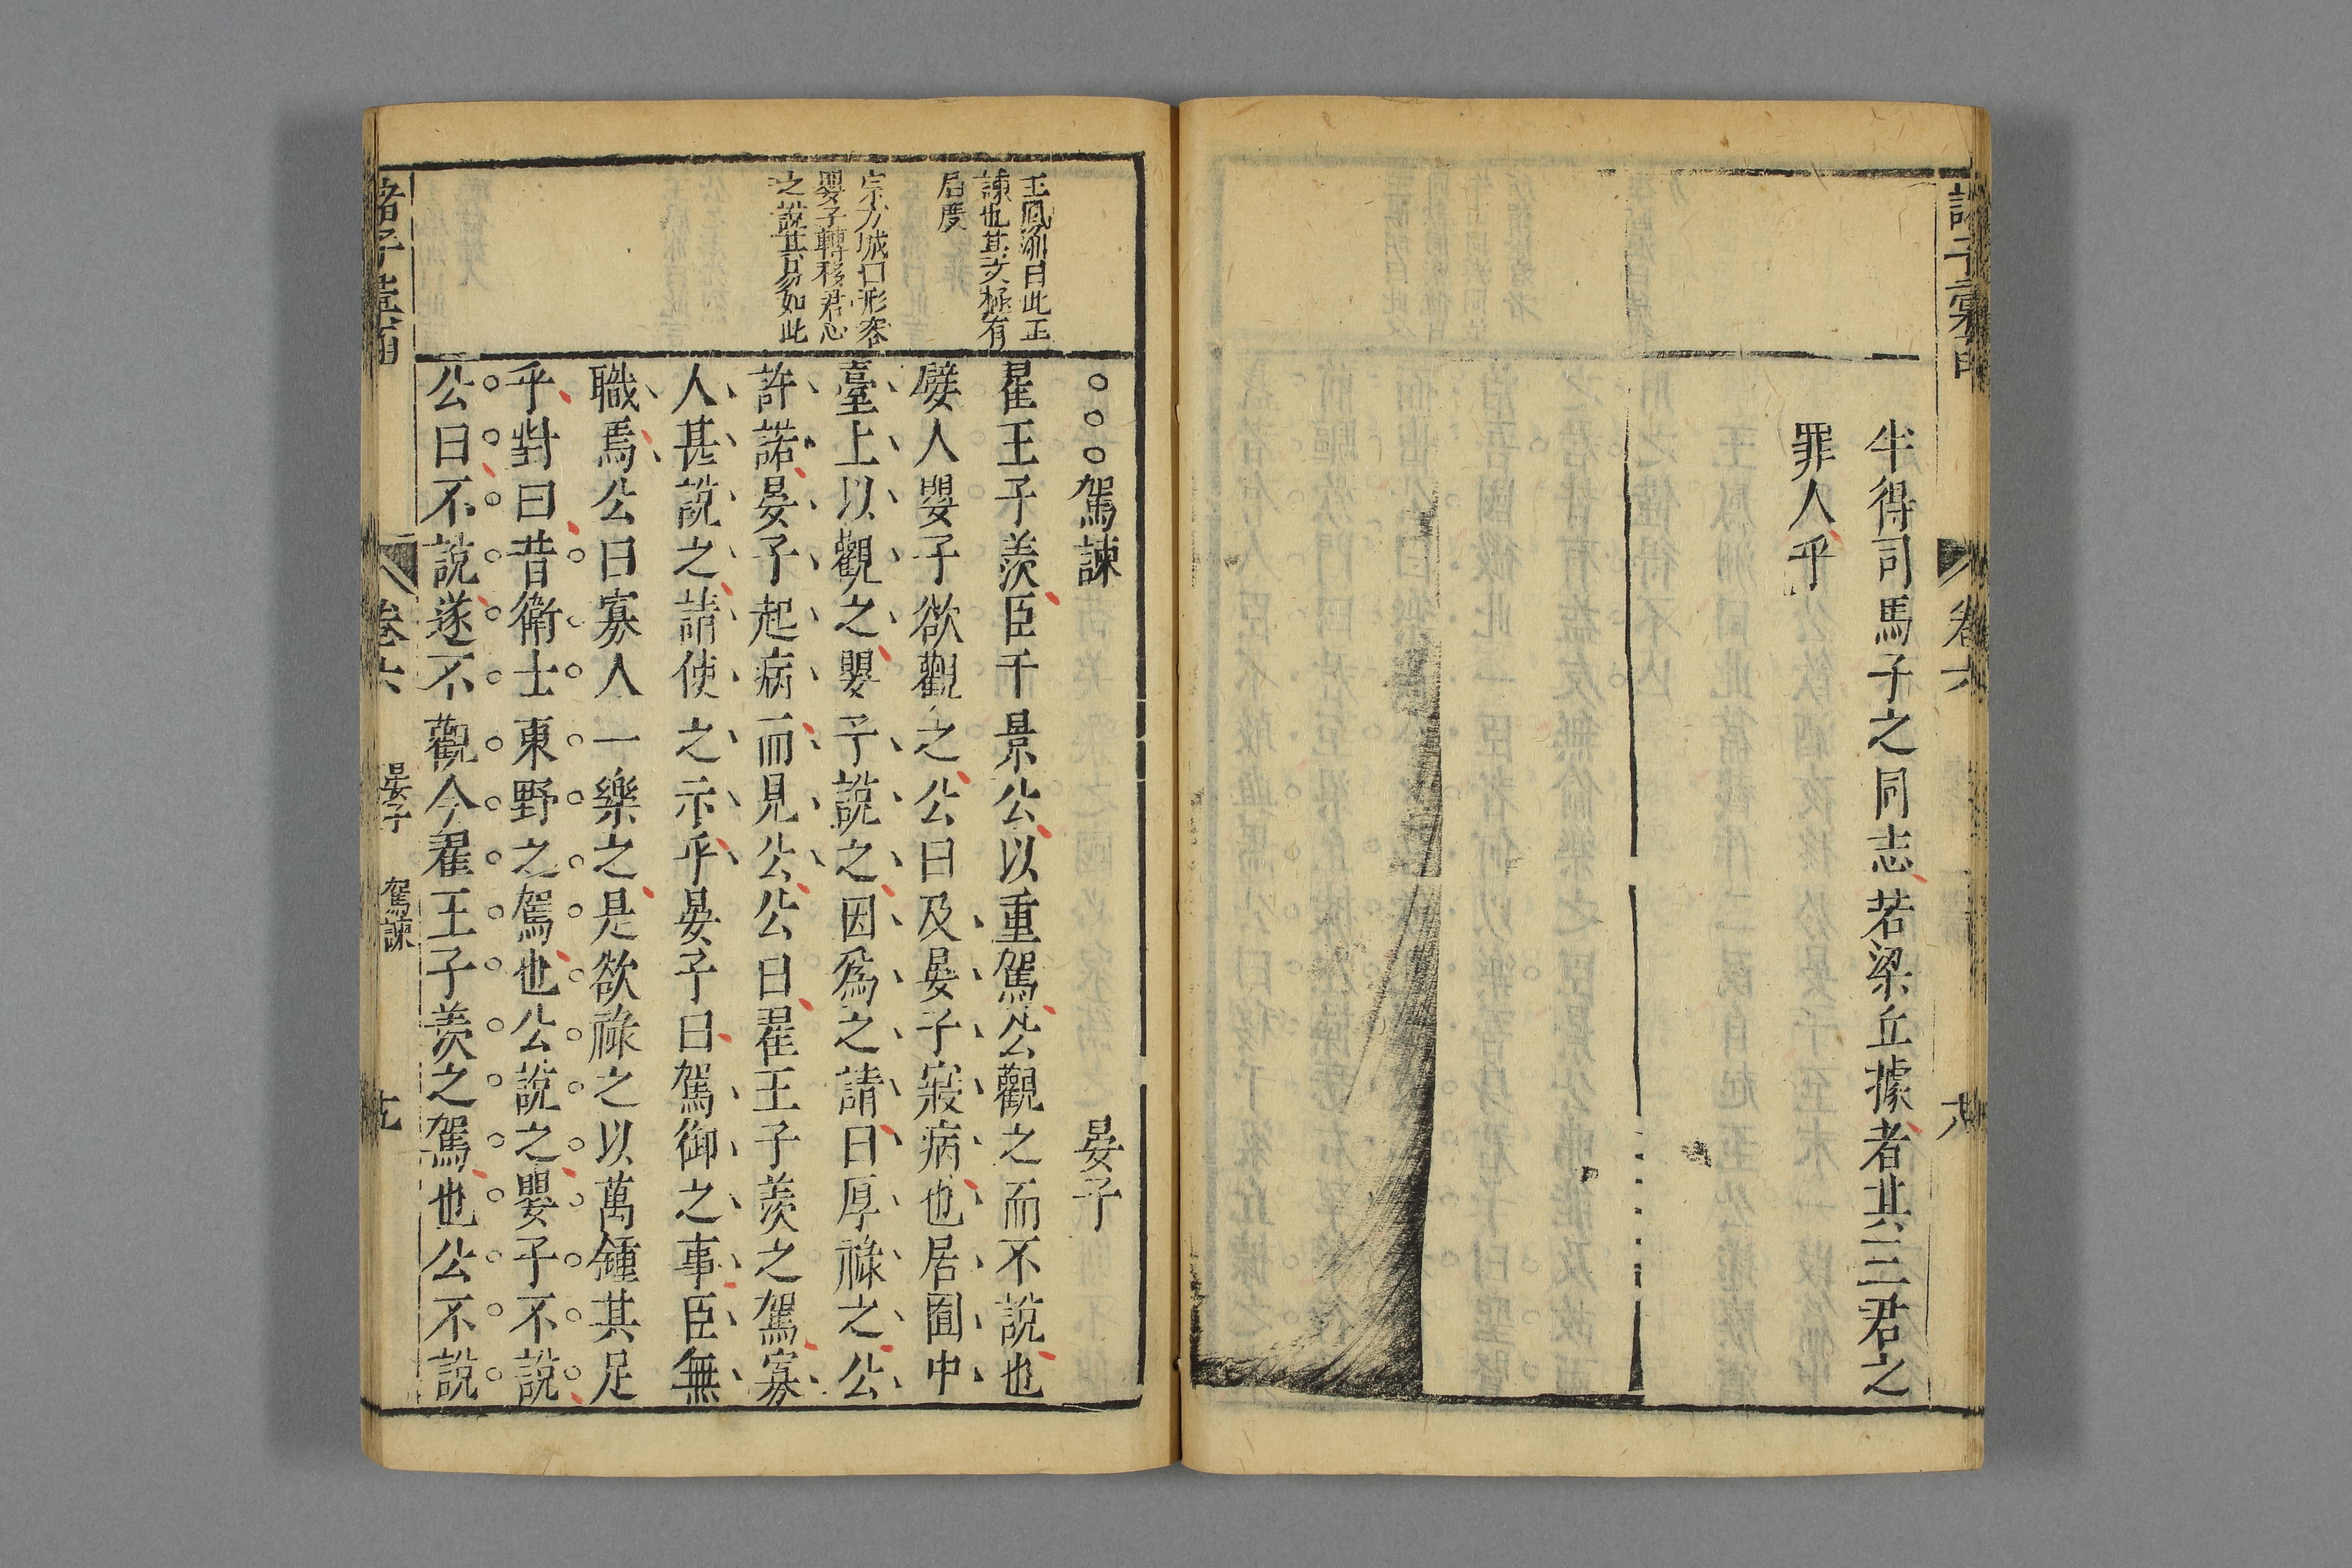 半得司馬子之同志若梁丘據者其三君之
罪人乎
卷六
王鳳洲曰此正
諫也其文極有
居度
宗方城曰形容
嬰子轉移君心
之說其易如此
○○○駕諫 晏子
翟王子羨臣千景公以重駕公觀之而不說也
嬖人嬰子欲觀之公曰及晏子寢病也居囿中
臺上以觀之嬰子說之因爲之請曰厚祿之公
許諾晏子起病而見公公曰翟王子羨之駕寡
人甚說之請使之示乎晏子曰駕御之事臣無
職焉公曰寡人一樂之是欲祿之以萬鍾其足
乎對曰昔衛士東野之駕也公說之嬰子不說
公曰不說遂不觀今翟王子羨之駕也公不說
卷六 晏子 駕諫